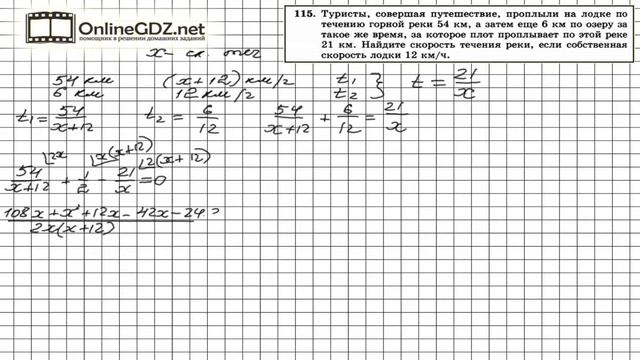 OnlineGDZ.net
помощник в решении домашних заданий
115. Туристы, совершая путешествие, проплыли на лодке по
течению горной реки 54 км, а затем еще 6 км по озеру за
такое же время, за которое плот проплывает по этой реке
21 км. Найдите скорость течения реки, если собственная
скорость лодки 12 км/ч.
x - ск. теч
54 км (x+12) км/ч t₁ } t = 21/x
6 км 12 км/ч t₂
t₁ = 54/(x+12) t₂ = 6/12 54/(x+12) + 6/12 = 21/x
2x x(x+12) 2(x+12)
54/(x+12) + 1/2 - 21/x = 0
108x + x² + 12x - 42x - 24
2x(x+12)